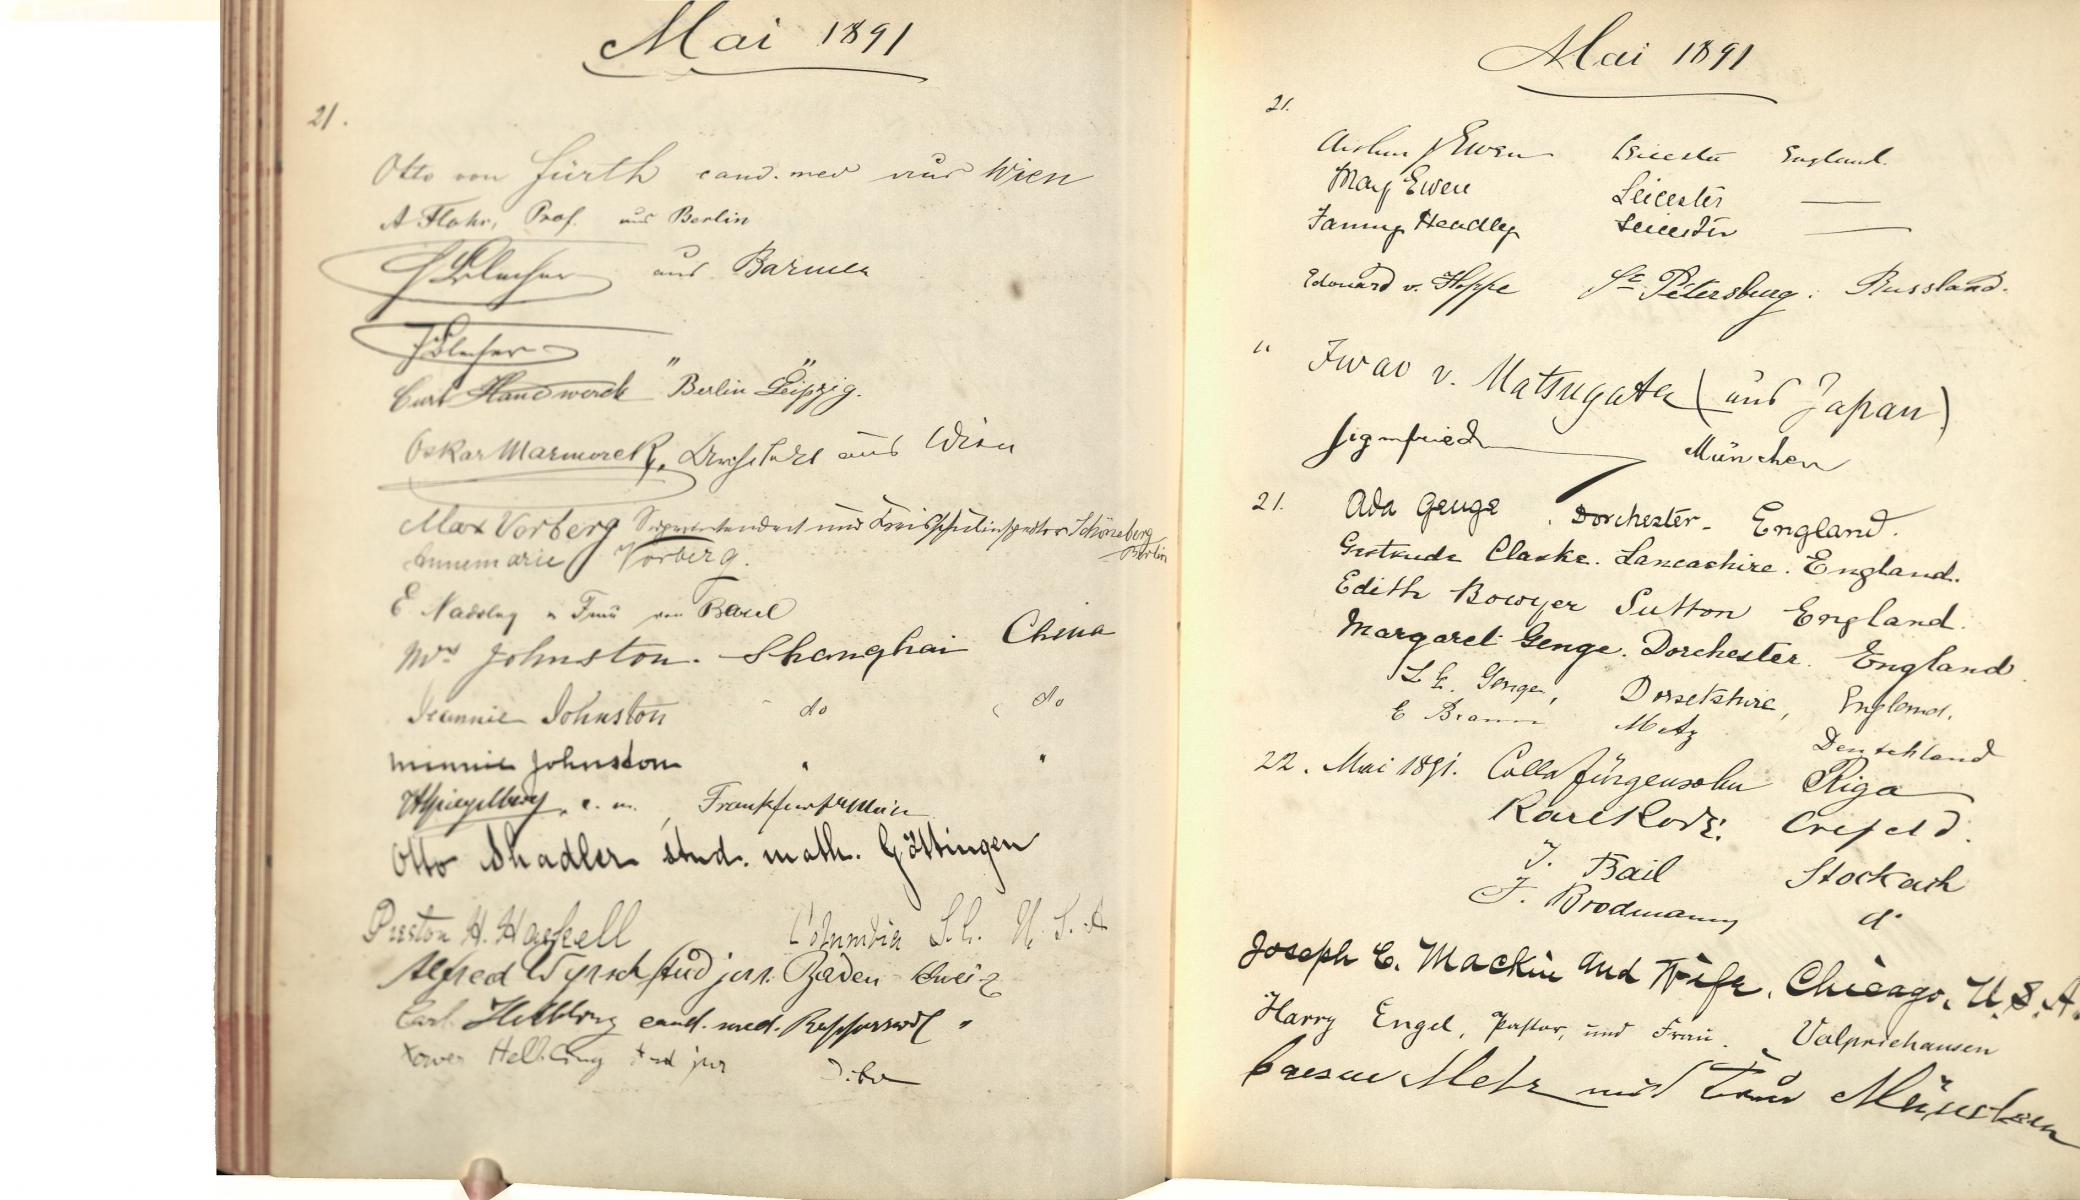 Mai 1891
21.
Otto von Fürth cand. med aus Wien
A Flohr, Prof. aus Berlin
aus Barmen
Curt Handwerck " Berlin-Leipzig. "
Oskar Marmorek, Architekt aus Wien
Max Vorberg Superintendent und Kreisschulinspektor Schöneberg
Berlin
Annemarie Vorberg.
E Nadolny u Frau von Basel
Mrs Johnston. Shanghai China
Jeannie Johnston do do
Minnie Johnston " "
Spiegelberg, c. m., Frankfurt a Main
Otto Shadler stud. math. Göttingen
Preston H. Haskell Columbia S.C. U.S.A
Alfred Wyrsch stud jur. Baden Schweiz
Carl Helbling cand. med. Rapperswil "
Helbling stud jur dito
Mai 1891
21.
Ewen Leicester England.
Mary Ewen Leicester —
Fanny Headley Leicester —
Edouard v. Hoppe St Petersburg. Russland.
" Iwao v. Matsugata (aus Japan)
Siegmfried München
21. Ada Genge. Dorchester- England.
Gertrude Clarke. Lancashire. England.
Edith Bowyer Sutton England.
Margaret Genge. Dorchester. England.
L E. Genge, Dorsetshire, England.
E Braun Metz Deutschland
22. Mai 1891. Jürgensohn Riga
Karl Rode. Crefeld.
J. Bail Stockach
F. Brodmann do
Joseph C. Mackin and Wife, Chicago, U.S.A.
Harry Engel, Pastor, und Frau. Volpriehausen
Metz und Frau München